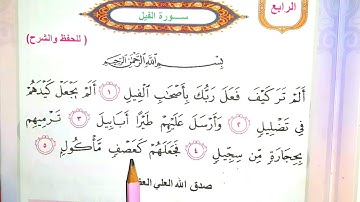 الرابع
سورة الفيل
( للحفظ والشرح )
بِسْمِ اللَّهِ الرَّحْمَٰنِ الرَّحِيمِ
أَلَمْ تَرَ كَيْفَ فَعَلَ رَبُّكَ بِأَصْحَٰبِ الْفِيلِ ١ أَلَمْ يَجْعَلْ كَيْدَهُمْ
فِي تَضْلِيلٍ ٢ وَأَرْسَلَ عَلَيْهِمْ طَيْرًا أَبَابِيلَ ٣ تَرْمِيهِم
بِحِجَارَةٍ مِّن سِجِّيلٍ ٤ فَجَعَلَهُمْ كَعَصْفٍ مَّأْكُولٍ ٥
صدق الله العلي